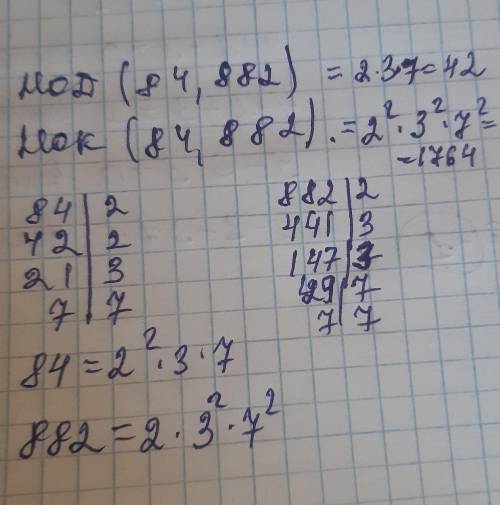 НОД (84, 882) = 2·3·7=42
НОК (84, 882). = 2²·3²·7²=
=1764
84 | 2
42 | 2
21 | 3
7 | 7
882 | 2
441 | 3
147 | 3
49 | 7
7 | 7
84 = 2²·3·7
882 = 2·3²·7²